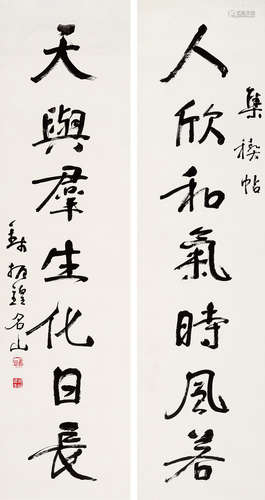 集禊帖
人欣和氣時風若
天與羣生化日長
錢振鍠名山